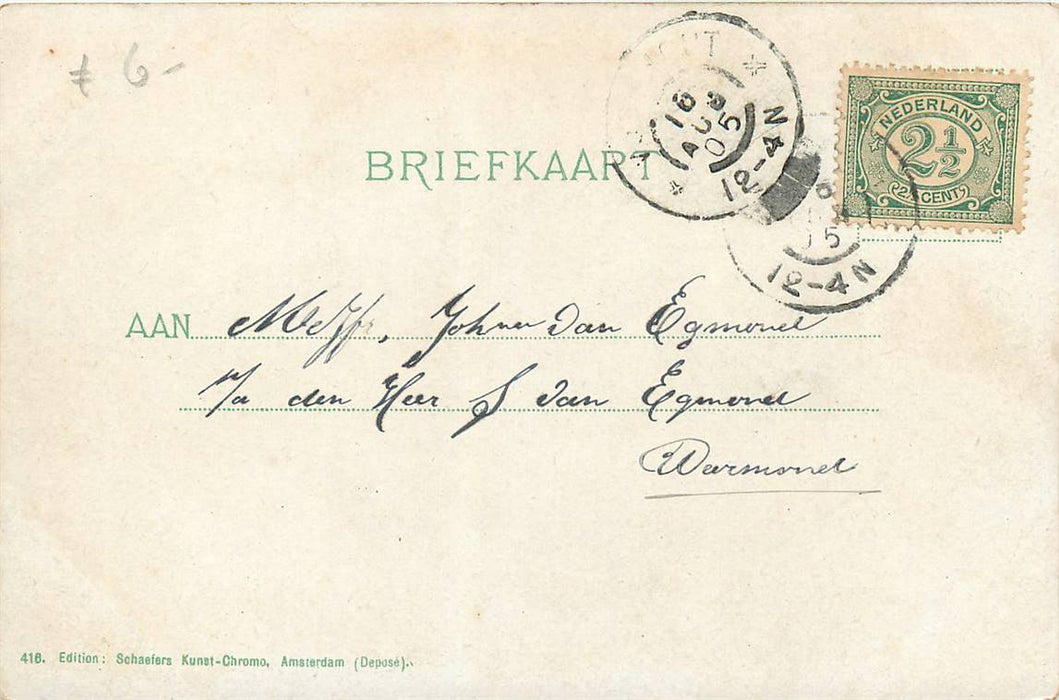 ≠ 6-
16
AUG
05
12-4N
NEDERLAND
2 1/2
2½ CENT
5
12-4N
BRIEFKAART
AAN Mejfr, Johna van Egmond
p/a den Heer S van Egmond
Warmond
416. Edition: Schaefers Kunst-Chromo, Amsterdam (Deposé).